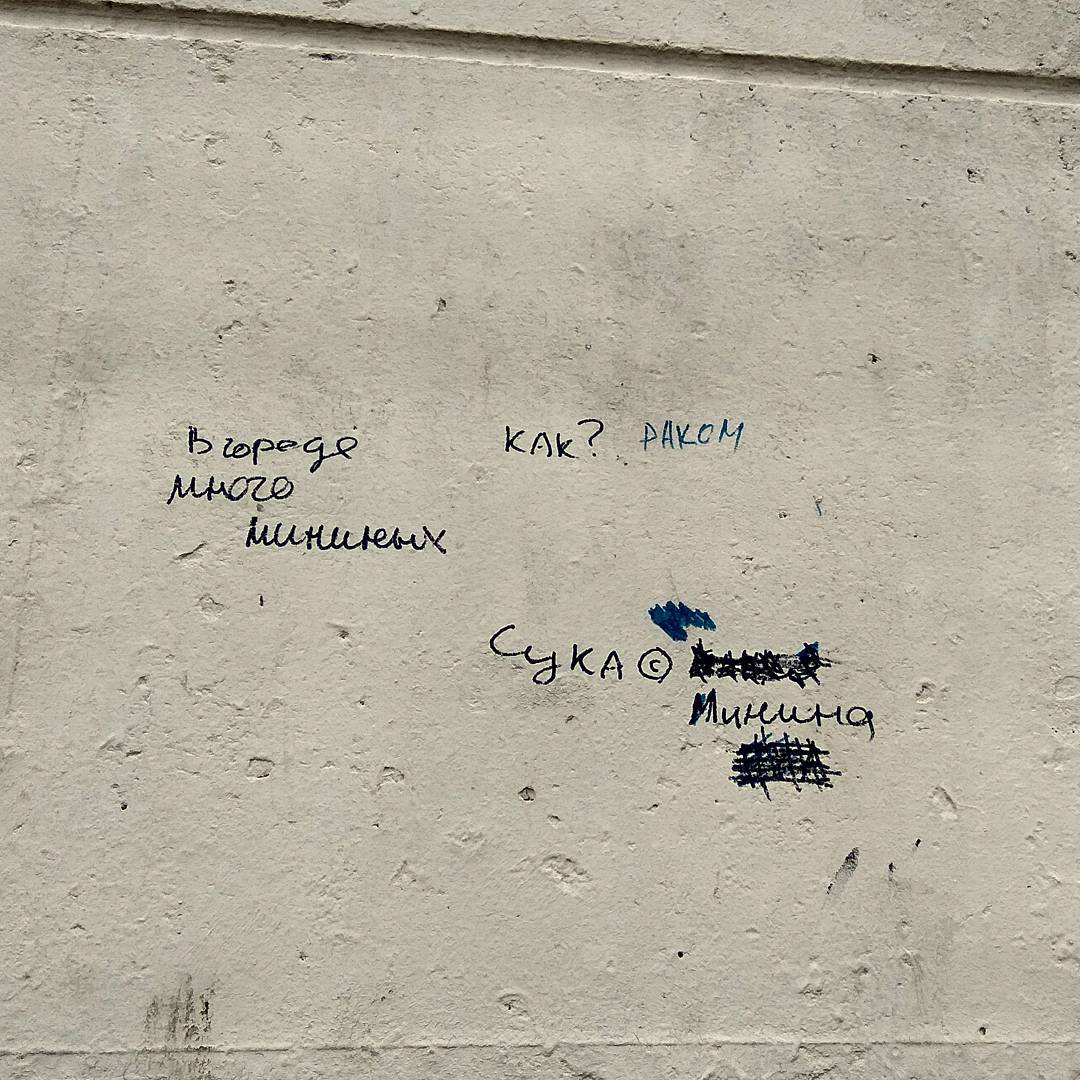 В городе
много
мининых
КАК? РАКОМ
Сука ©
Минина